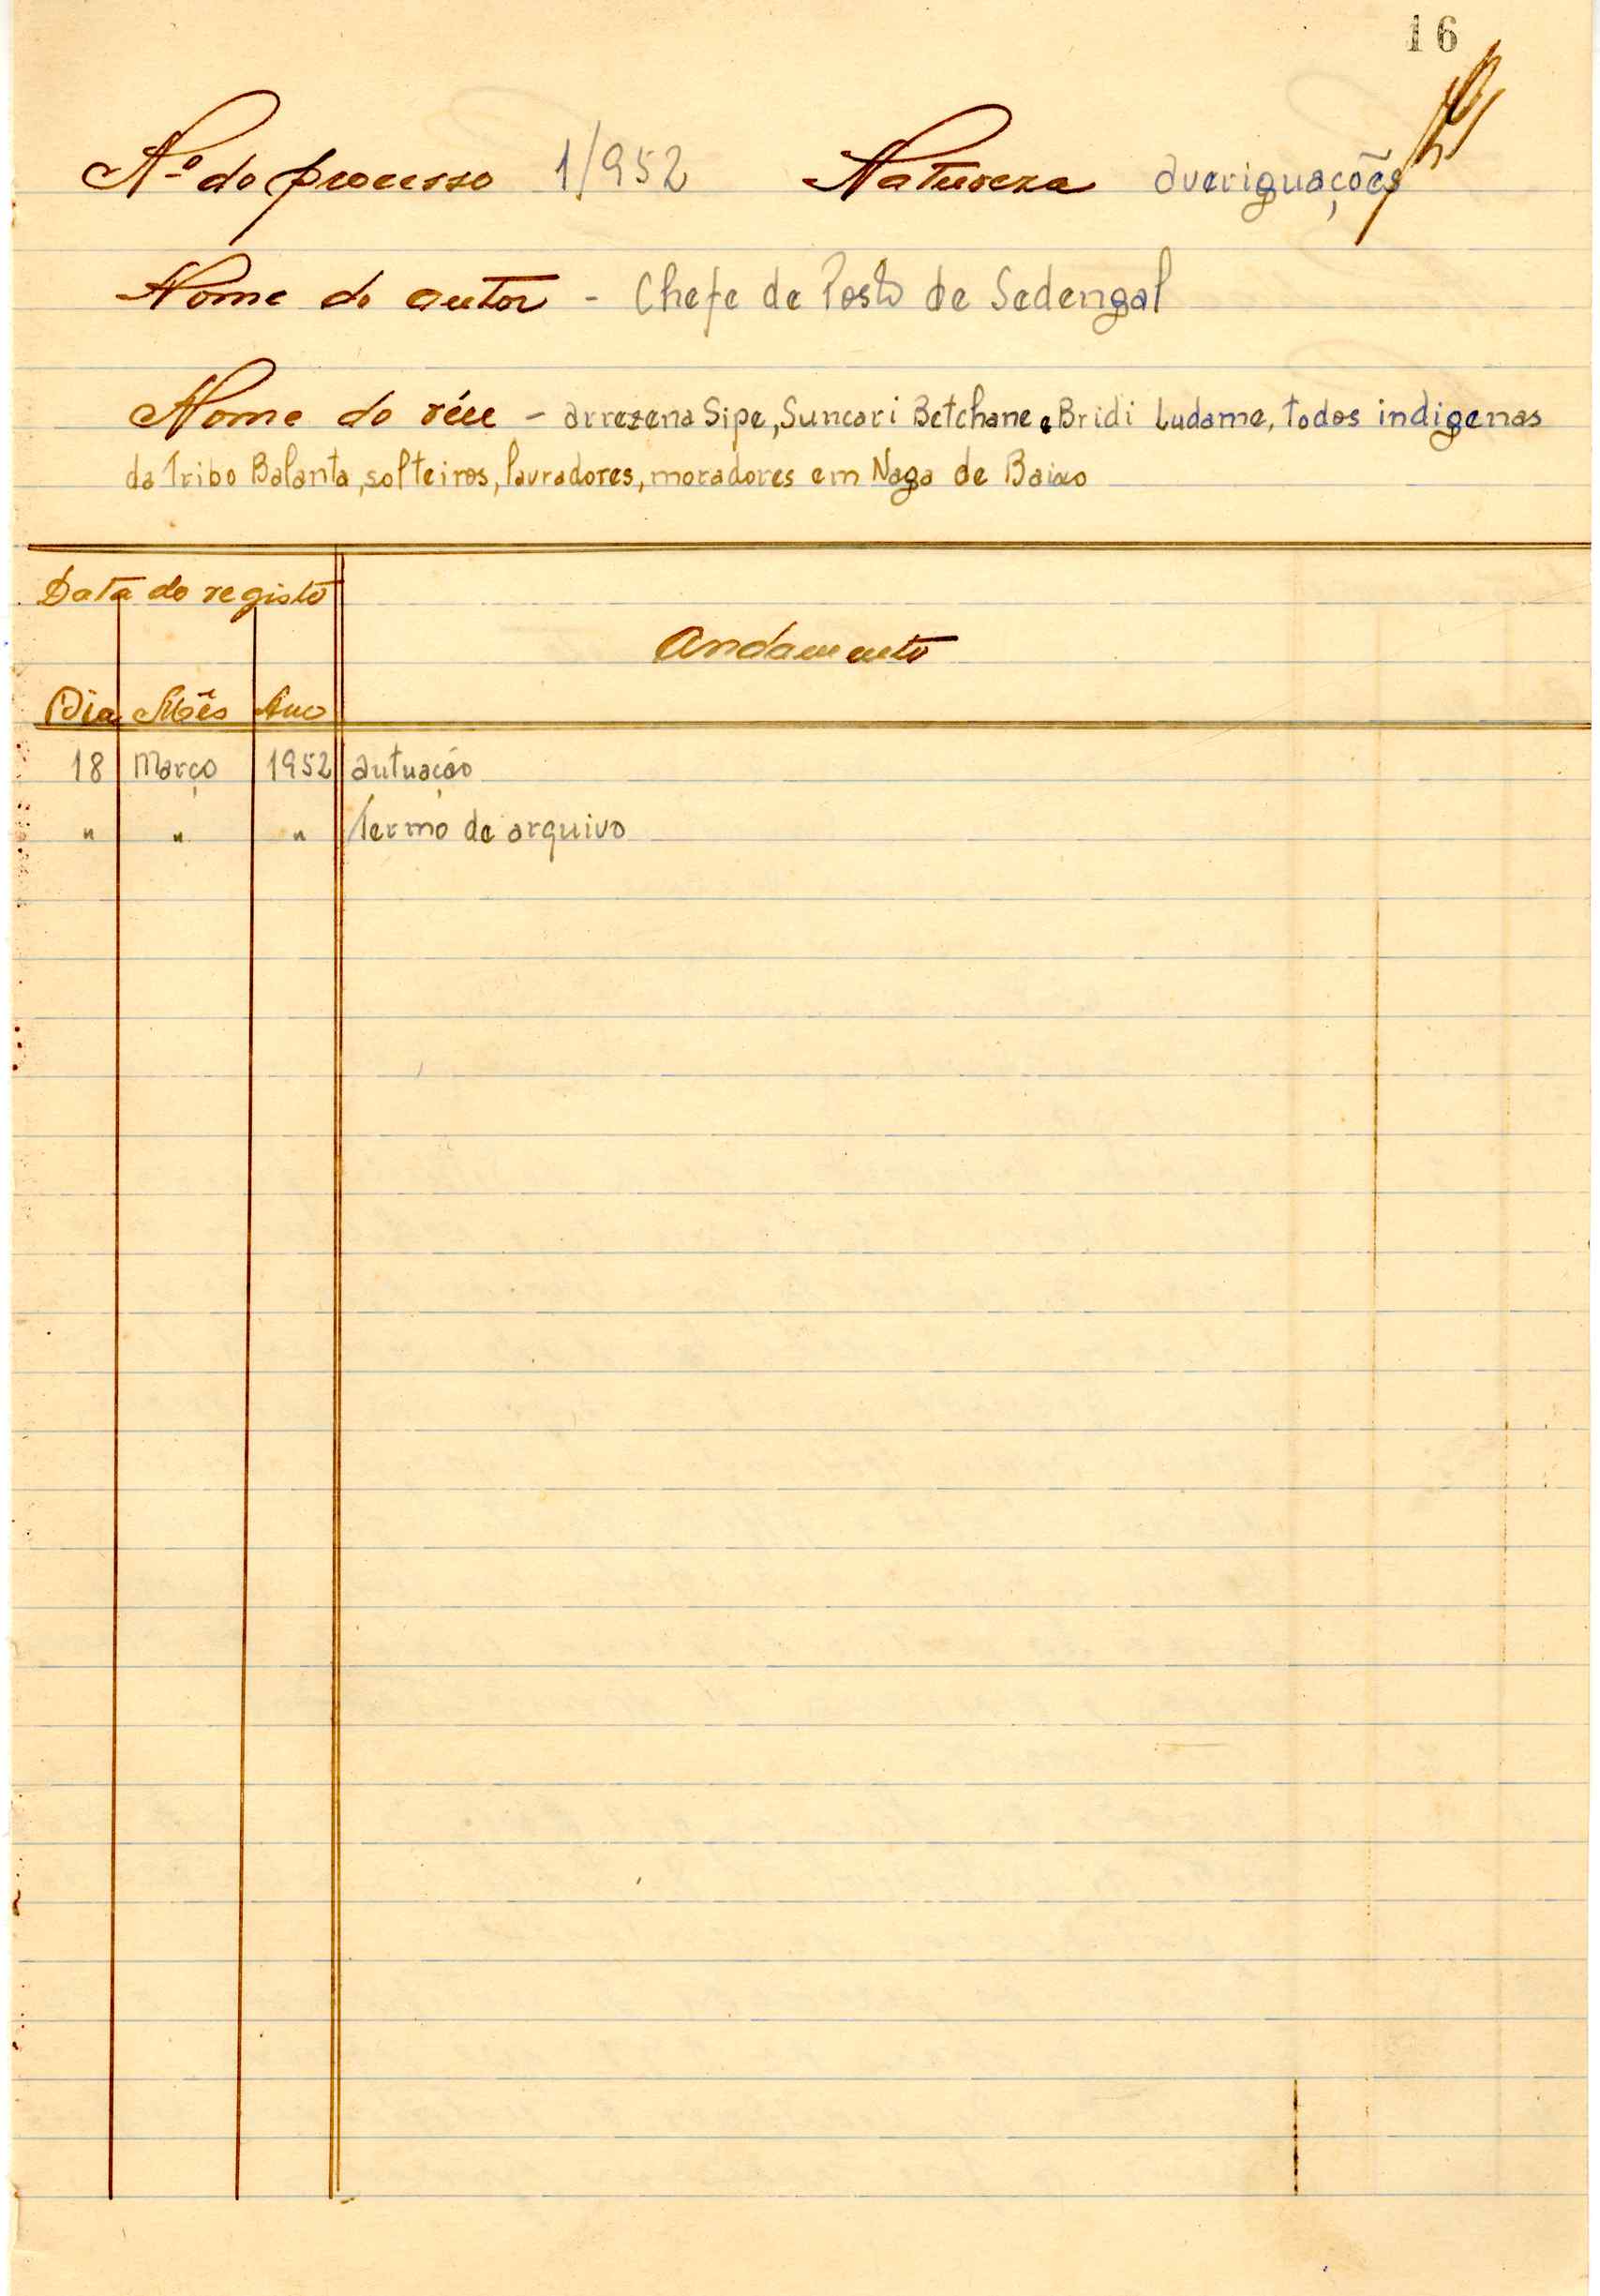 16
Nº do processo 1/952 Natureza averiguações
Nome do autor - Chefe de Posto de Sedengal
Nome do réu - arrezena Sipe, Suncari Betchane e Bridi Ludame, todos indigenas
da Tribo Balanta, solteiros, lavradores, moradores em Naga de Baixo
Data do registo
Andamento
Dia Mês Ano
18 Março 1952 autuação
" " " Termo de arquivo